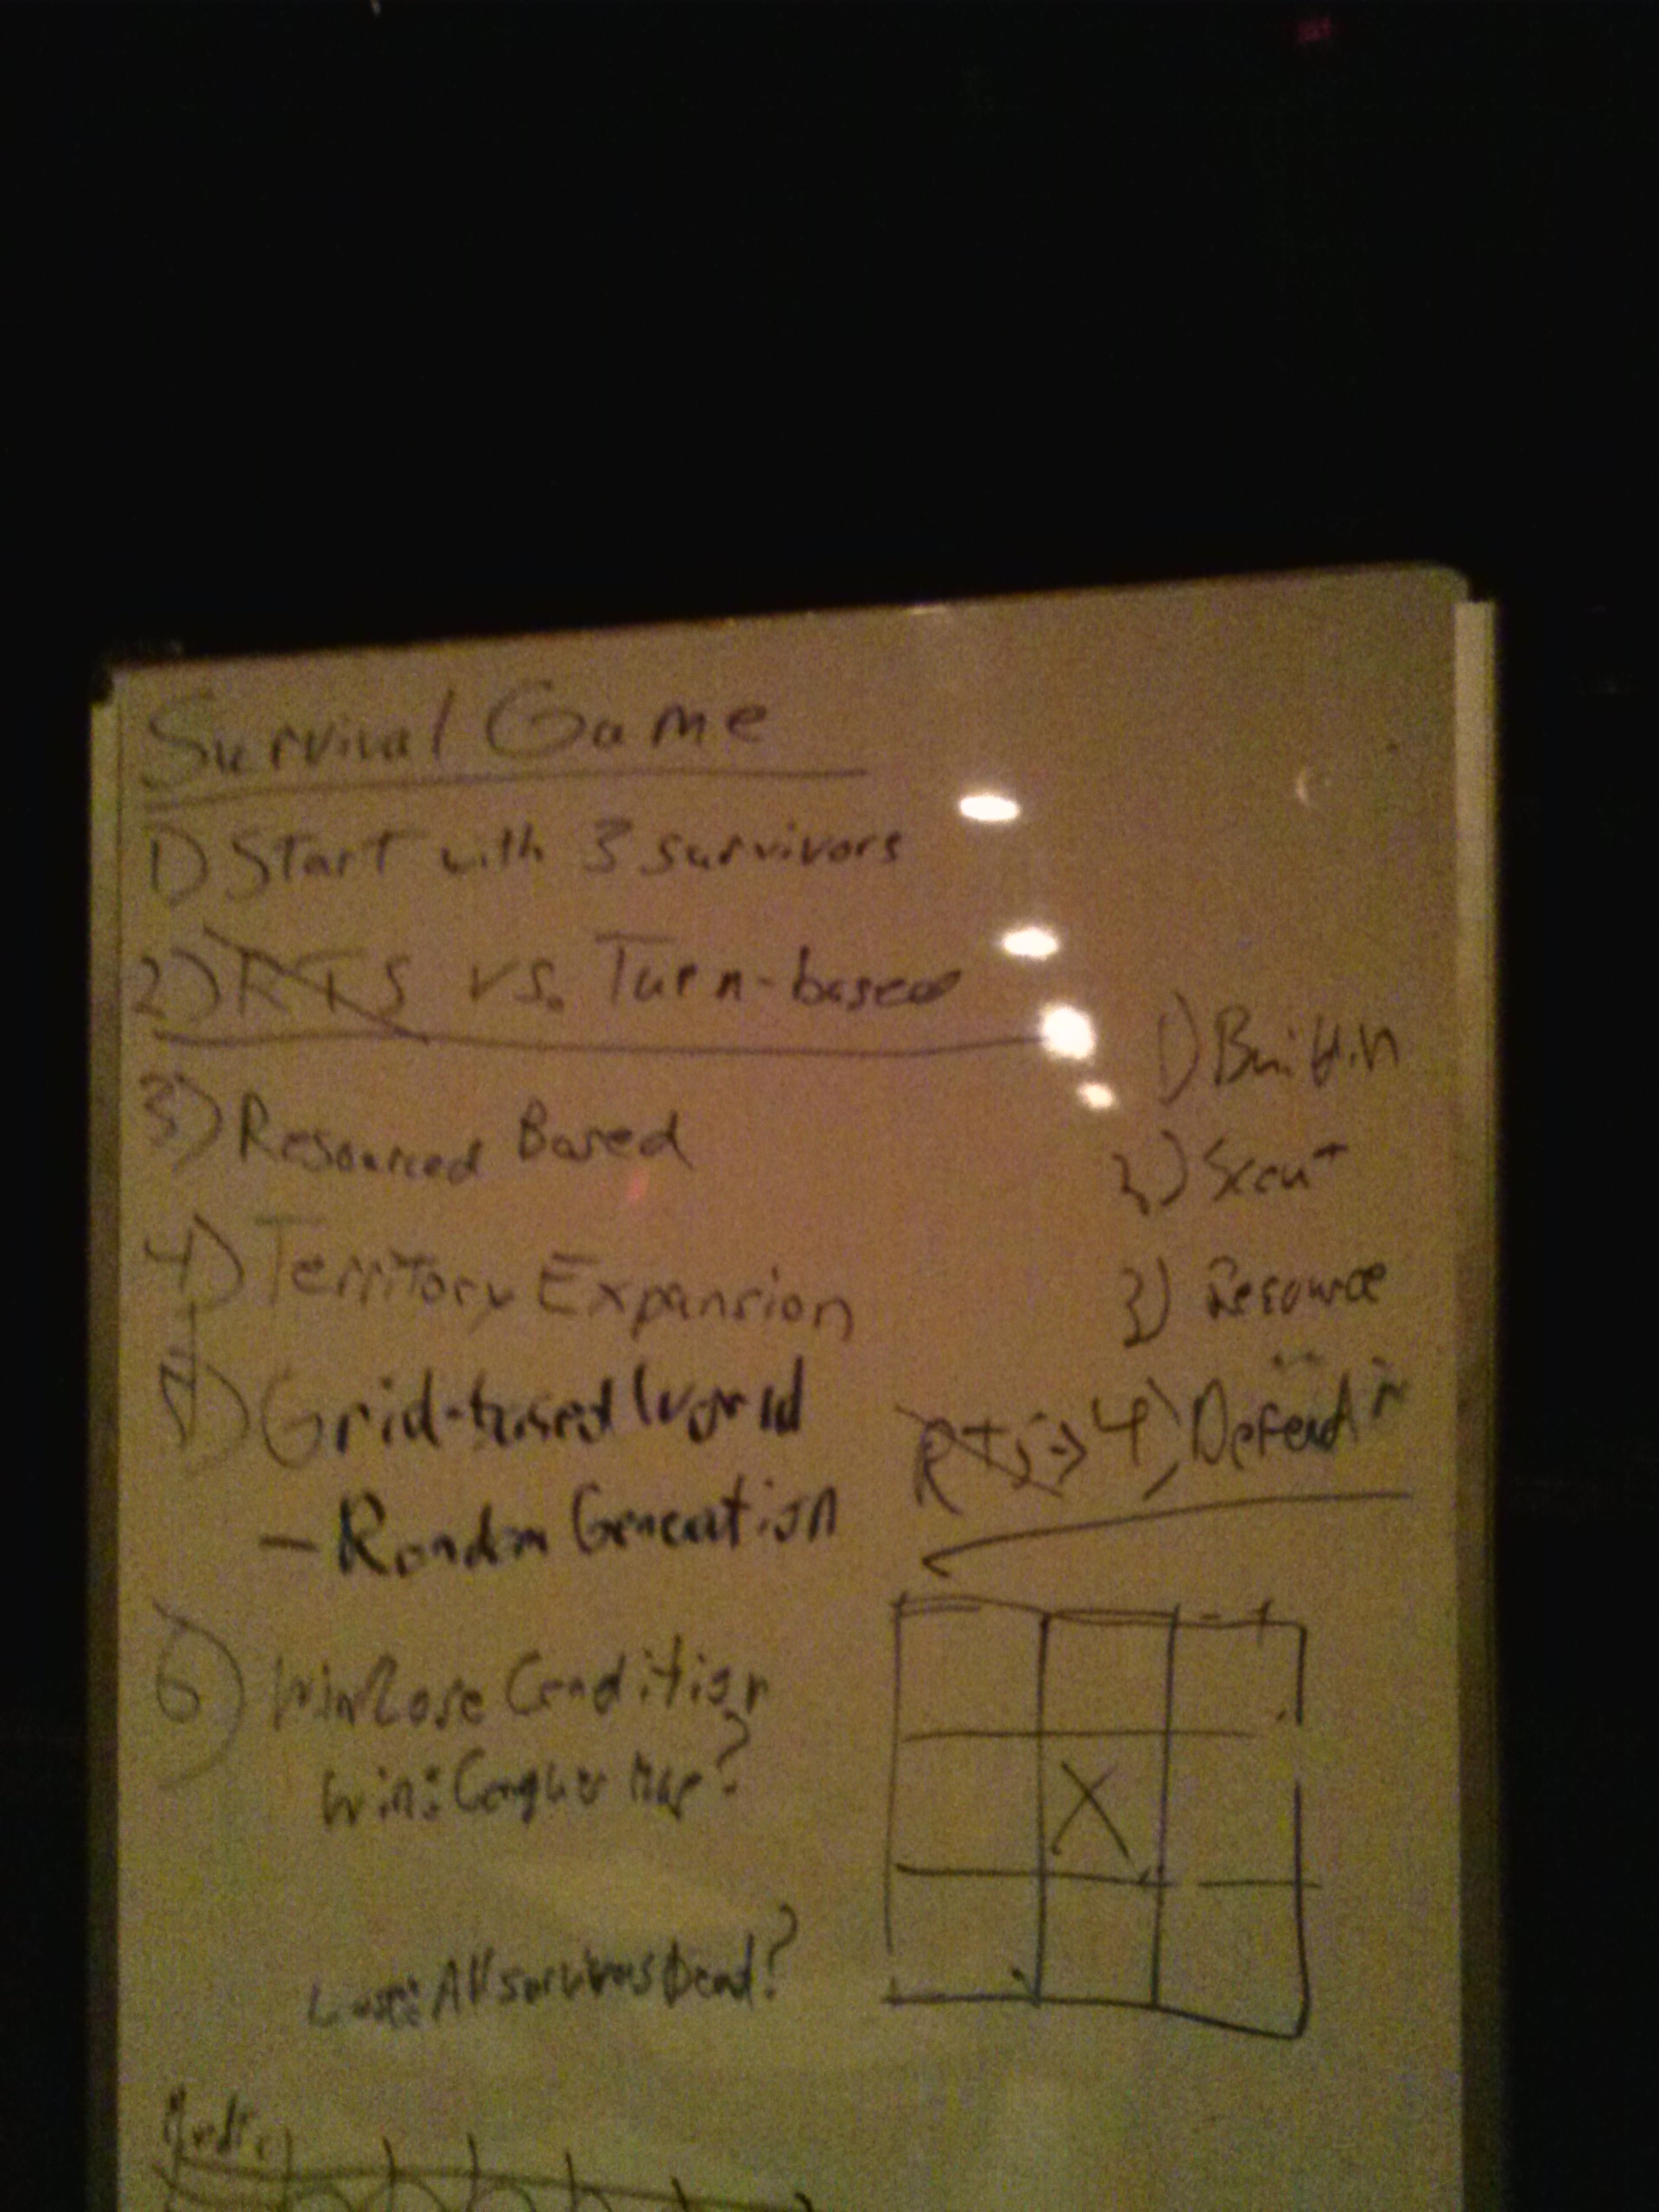 Survival Game
1) Start with 3 survivors
2) RTS vs. Turn-based
3) Resourced Based
4) Territory Expansion
Grid-based World
- Random Generation
6) Win/Lose Condition
Win: Conquer Map?
Lose: All survivors Dead?
1)
2) Scout
3) Resource
4) Defend
X